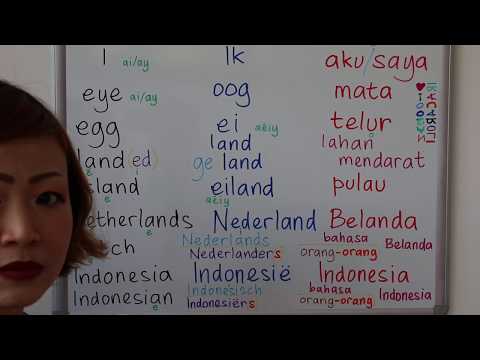 I ai/ay Ik aku/saya
eye ai/ay oog mata
egg ei aèiy telur
land lahan
land (ed) ge land mendarat
e
island eiland pulau
e aèiy
Netherlands Nederland Belanda
e
Dutch Nederlands bahasa Belanda
Nederlanders orang-orang
Indonesia Indonesië Indonesia
Indonesisch bahasa
Indonesian Indonesiërs orang-orang Indonesia
e